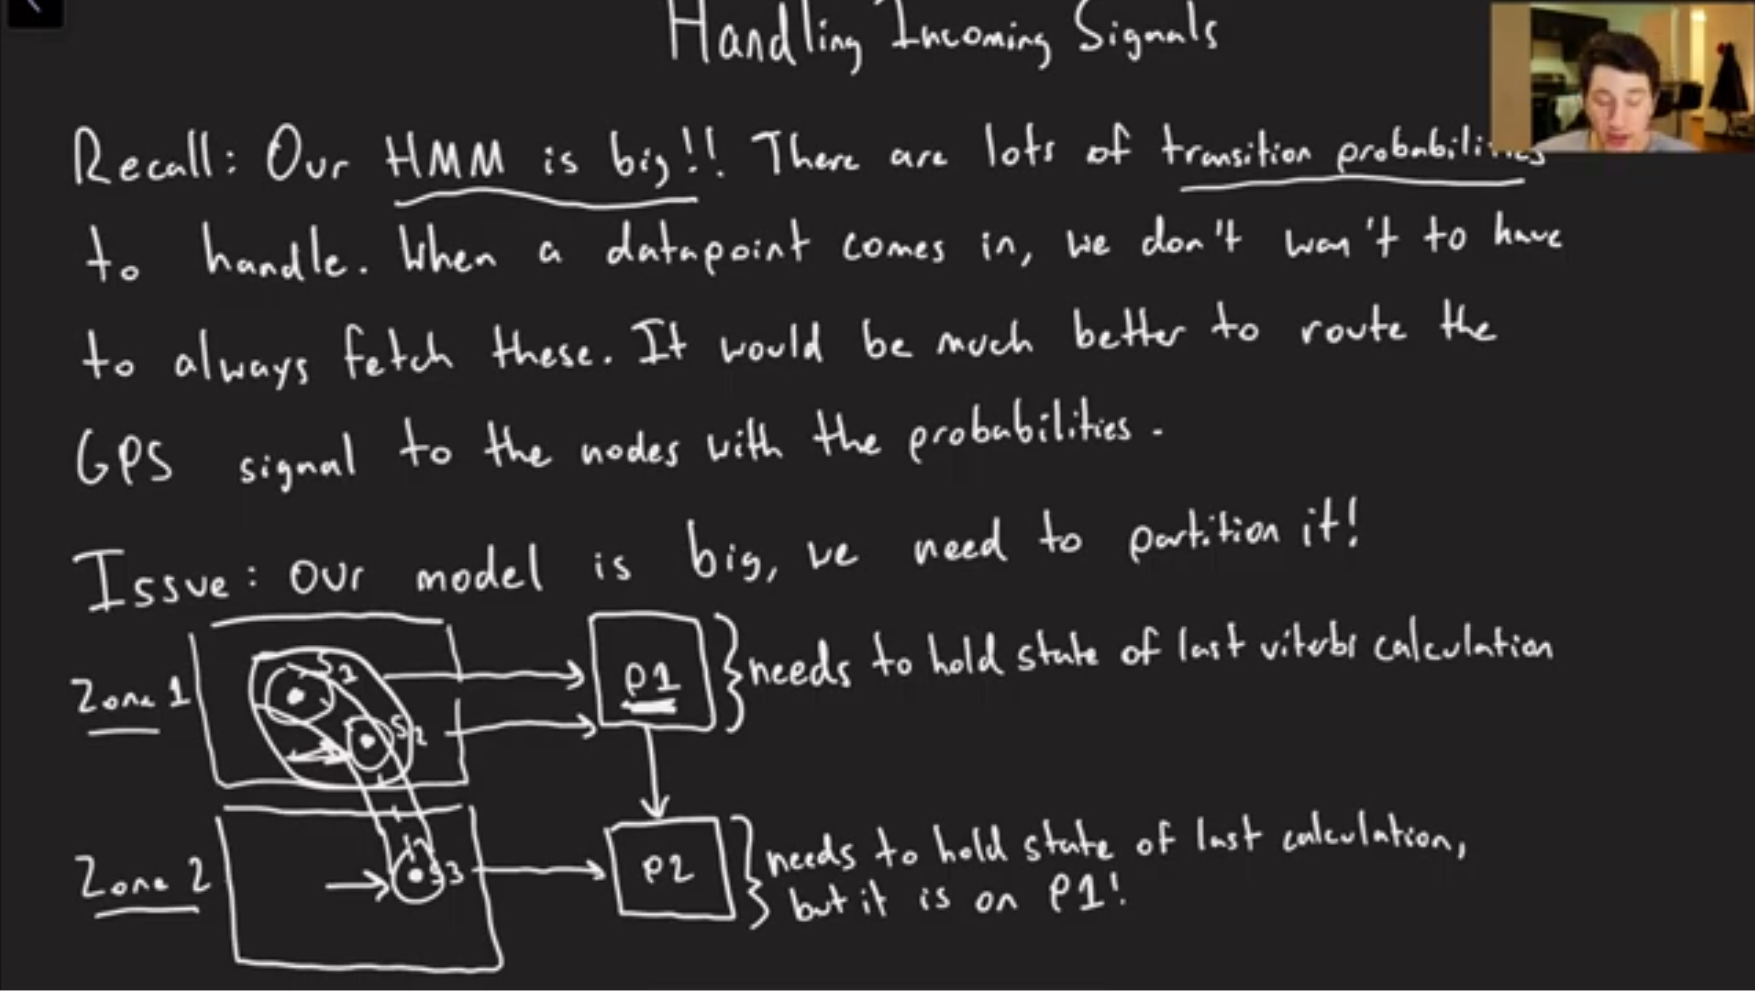 Handling Incoming Signals
Recall: Our HMM is big!! There are lots of transition probabilities
to handle. When a datapoint comes in, we don't wan't to have
to always fetch these. It would be much better to route the
GPS signal to the nodes with the probabilities.
Issue: our model is big, we need to partition it!
Zone 1
S2
P1
needs to hold state of last viterbi calculation
Zone 2
S3
P2
needs to hold state of last calculation,
but it is on P1!